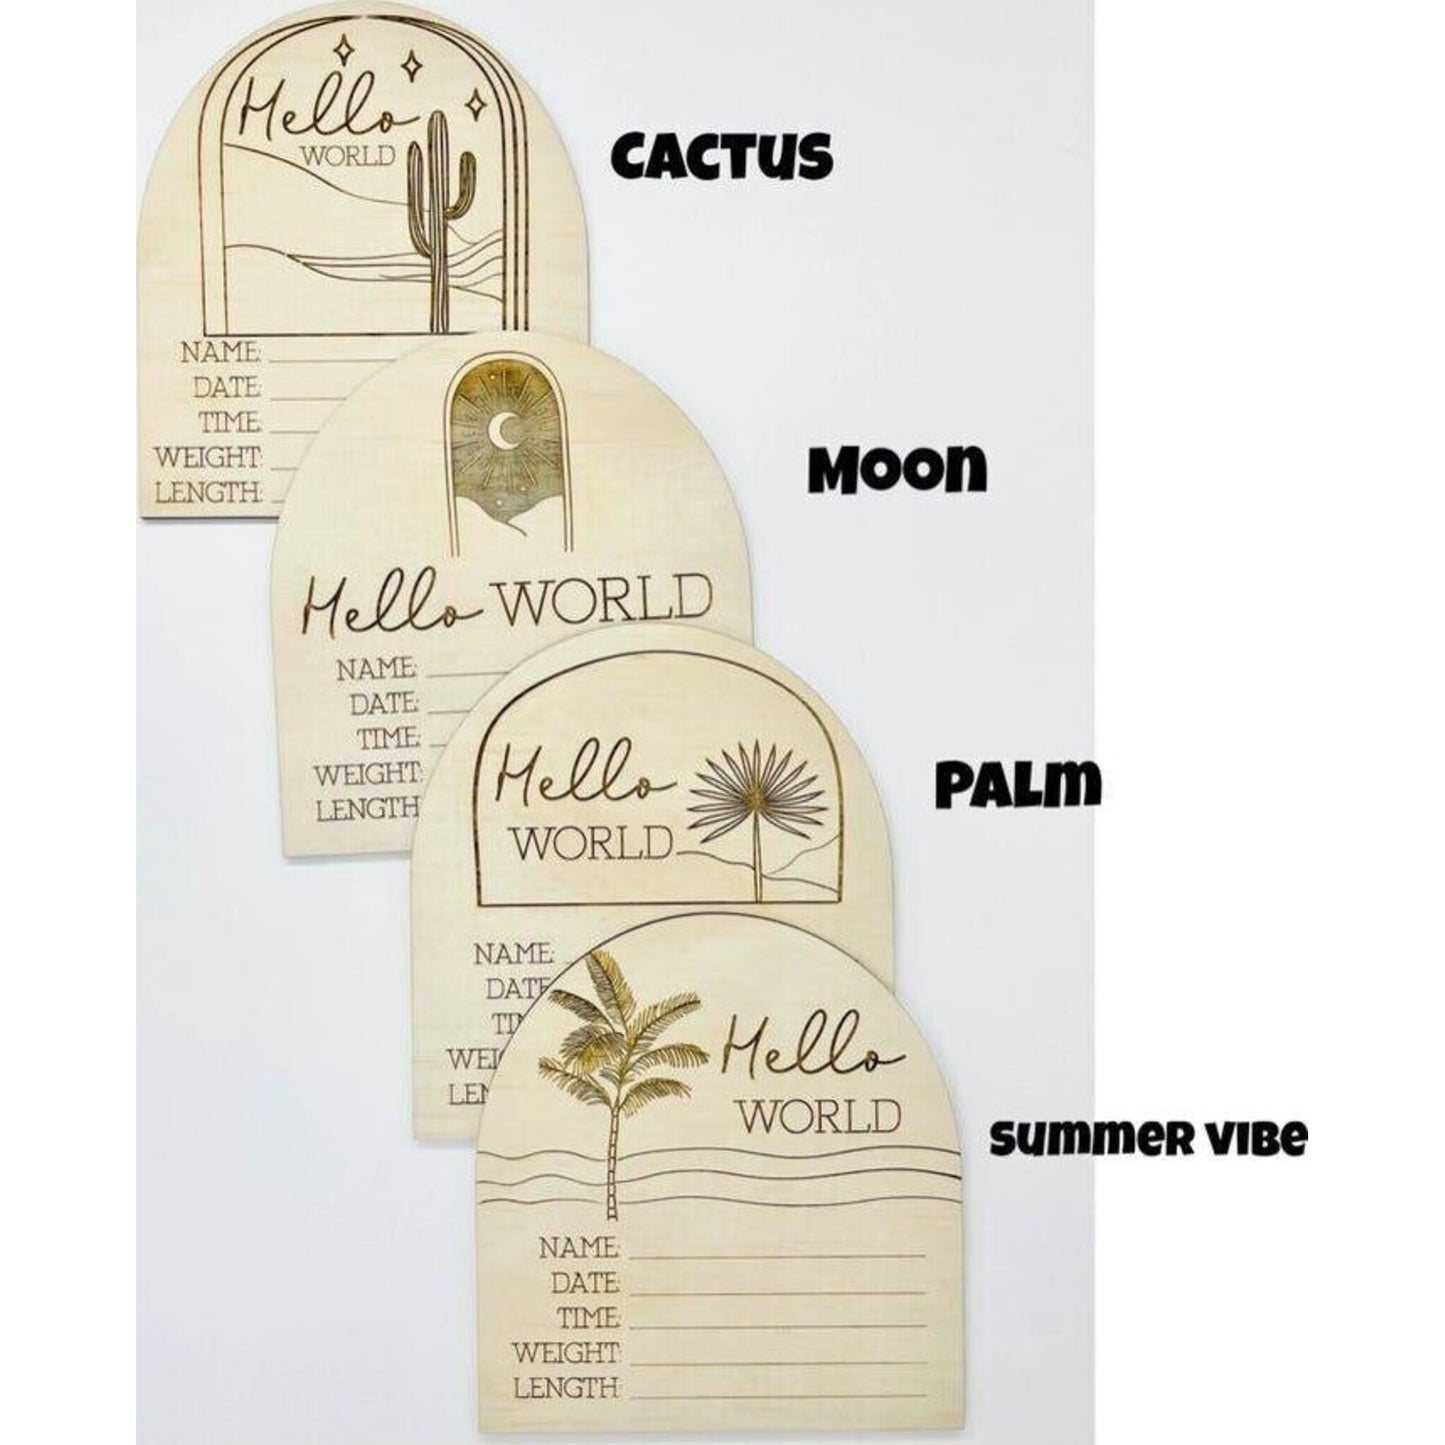 Hello
WORLD
CACTUS
NAME:
DATE:
TIME:
WEIGHT:
LENGTH:
MOON
Hello WORLD
NAME:
DATE:
TIME:
WEIGHT:
LENGTH:
PALM
Hello
WORLD
NAME:
DATE
TI
WEI
LEN
Hello
WORLD
SUMMER VIBE
NAME:
DATE:
TIME:
WEIGHT:
LENGTH: